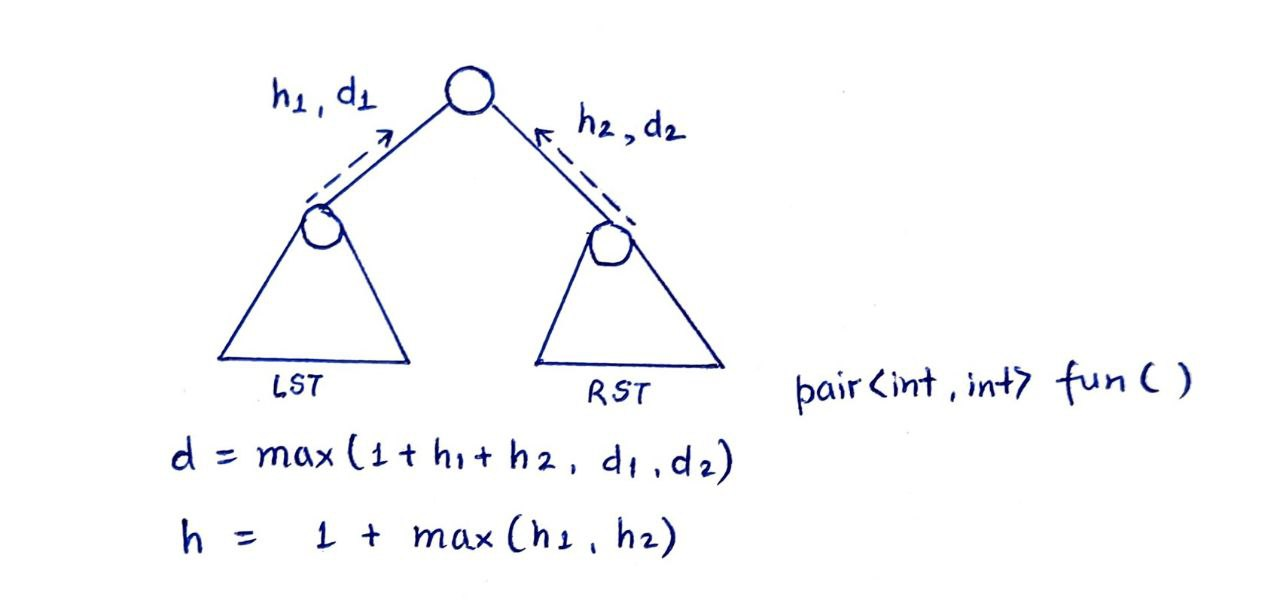 h1, d1
h2, d2
LST
RST
pair<int, int> fun()
d = max(1 + h1 + h2, d1, d2)
h = 1 + max(h1, h2)